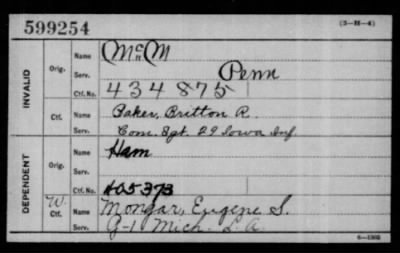 599254
(3-H-4)
INVALID
Orig.
Name McM
Serv. Penn
Ctf. No. 434875
Ctf. Name Baker, Britton R.
Serv. Com. Sgt. 29 Iowa Inf.
DEPENDENT
Orig.
Name Ham
Serv.
Ctf. No. 405373
W. Ctf. Name Mongar, Eugene S.
Serv. G-1 Mich. L.A.